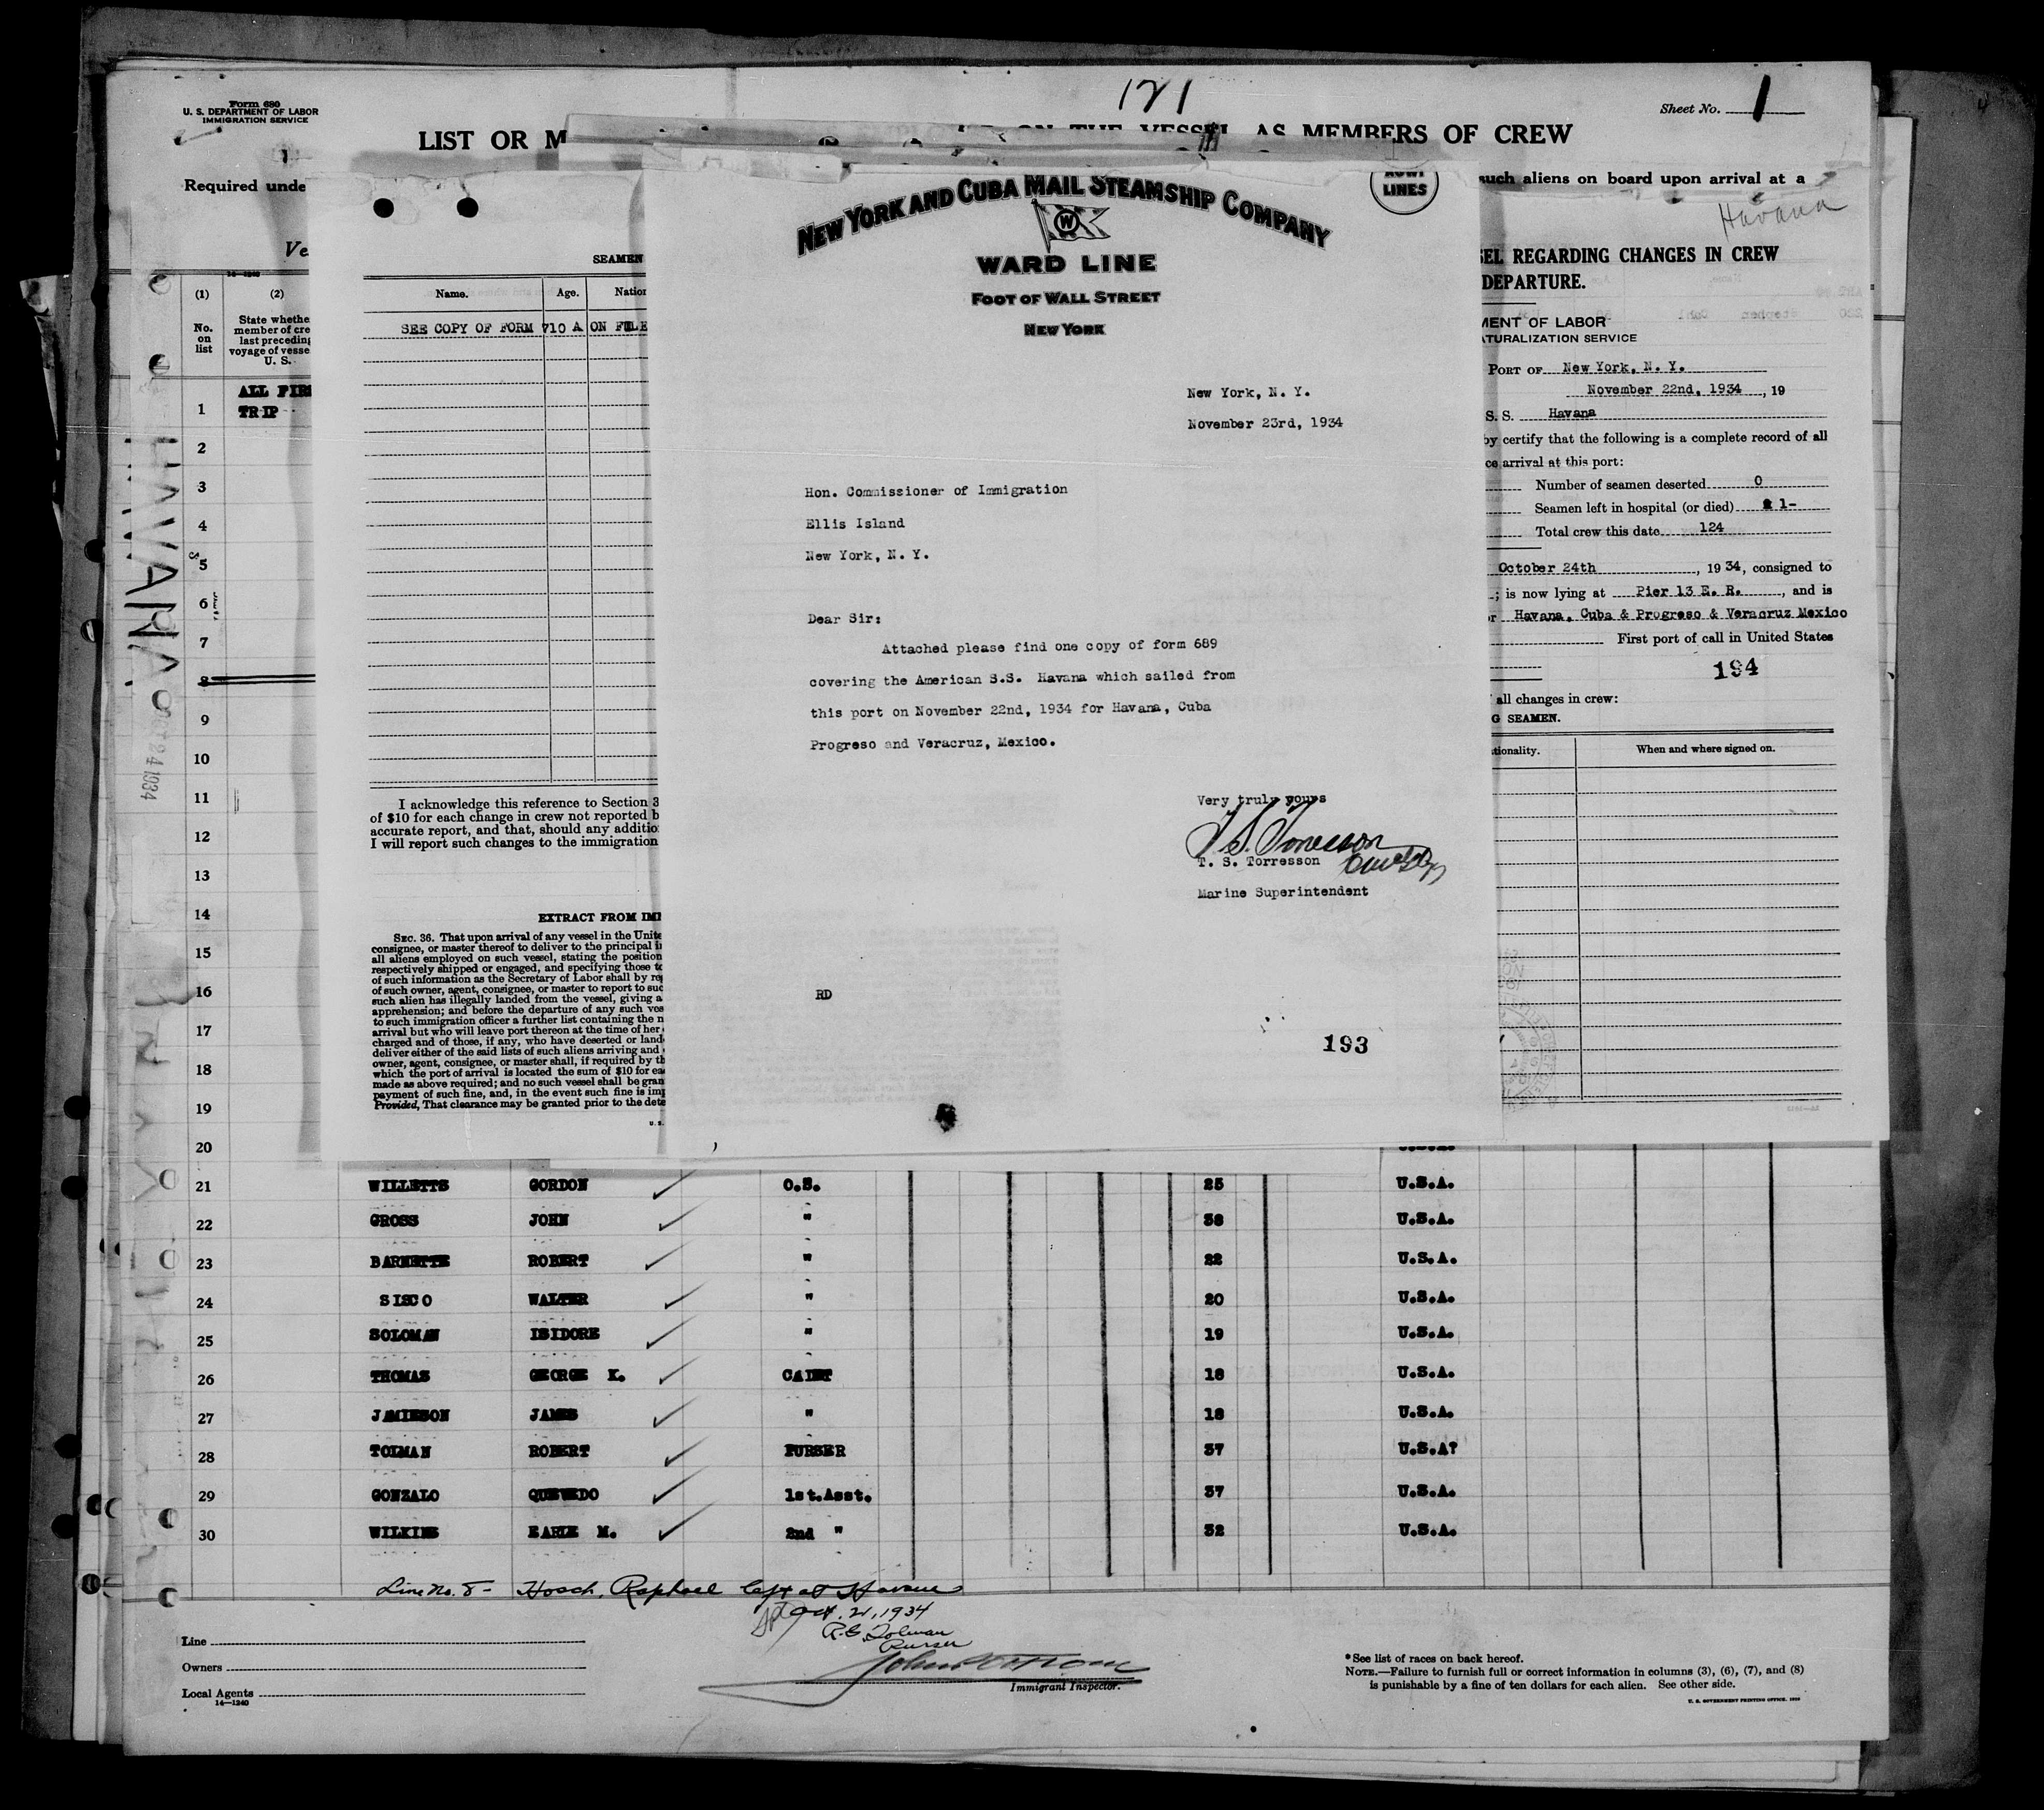 121
Form 680
U. S. DEPARTMENT OF LABOR
IMMIGRATION SERVICE
Sheet No. 1
LIST OR M
ON THE VESSEL AS MEMBERS OF CREW
Required unde
such aliens on board upon arrival at a
Havana
Ve
(1)
No.
on
list
(2)
State whethe
member of cre
last preceding
voyage of vesse
U. S.
ALL FIRS
TRIP
1
2
3
4
5
6
7
8
9
10
11
12
13
14
15
16
17
18
19
20
HAVANA OCT 24 1934
SEAMEN
Name. Age. Nation
SEE COPY OF FORM 710 A ON FILE
I acknowledge this reference to Section 3
of $10 for each change in crew not reported b
accurate report, and that, should any additio
I will report such changes to the immigration
EXTRACT FROM IMM
SEC. 36. That upon arrival of any vessel in the Unite
consignee, or master thereof to deliver to the principal i
all aliens employed on such vessel, stating the position
respectively shipped or engaged, and specifying those to
of such information as the Secretary of Labor shall by re
of such owner, agent, consignee, or master to report to suc
such alien has illegally landed from the vessel, giving a
apprehension; and before the departure of any such ves
to such immigration officer a further list containing the n
arrival but who will leave port thereon at the time of her
charged and of those, if any, who have deserted or land
deliver either of the said lists of such aliens arriving and
owner, agent, consignee, or master shall, if required by th
which the port of arrival is located the sum of $10 for ea
made as above required; and no such vessel shall be gran
payment of such fine, and, in the event such fine is imp
Provided, That clearance may be granted prior to the dete
U. S.
NEW YORK AND CUBA MAIL STEAMSHIP COMPANY
W
AGWI
LINES
WARD LINE
FOOT OF WALL STREET
NEW YORK
New York, N. Y.
November 23rd, 1934
Hon. Commissioner of Immigration
Ellis Island
New York, N. Y.
Dear Sir:
Attached please find one copy of form 689
covering the American S.S. Havana which sailed from
this port on November 22nd, 1934 for Havana, Cuba
Progreso and Veracruz, Mexico.
Very truly yours
T. S. Torresson
T. S. Torresson
Marine Superintendent
RD
193
SEL REGARDING CHANGES IN CREW
DEPARTURE.
MENT OF LABOR
ATURALIZATION SERVICE
PORT OF New York, N. Y.
November 22nd, 1934, 19
S. S. Havana
by certify that the following is a complete record of all
ce arrival at this port:
Number of seamen deserted 0
Seamen left in hospital (or died) 1-
Total crew this date 124
October 24th, 1934, consigned to
; is now lying at Pier 13 E. R., and is
or Havana, Cuba & Progreso & Veracruz Mexico
First port of call in United States
194
all changes in crew:
G SEAMEN.
tionality. When and where signed on.
21 WILLETTS GORDON O.S. 25 U.S.A.
22 GROSS JOHN " 38 U.S.A.
23 BARNETTE ROBERT " 22 U.S.A.
24 SISCO WALTER " 20 U.S.A.
25 SOLOMAN ISIDORE " 19 U.S.A.
26 THOMAS GEORGE K. CADET 18 U.S.A.
27 JAMIESON JAMES " 18 U.S.A.
28 TOLMAN ROBERT PURSER 37 U.S.A?
29 GONZALO QUEVEDO 1st.Asst. 37 U.S.A.
30 WILKINS EARLE M. 2nd " 32 U.S.A.
Line No. 8- Hosch, Raphael left at Havana
Oct. 21, 1934
R.G. Tolman
Purser
Immigrant Inspector.
Line
Owners
Local Agents
14—1240
*See list of races on back hereof.
NOTE.—Failure to furnish full or correct information in columns (3), (6), (7), and (8)
is punishable by a fine of ten dollars for each alien. See other side.
U. S. GOVERNMENT PRINTING OFFICE